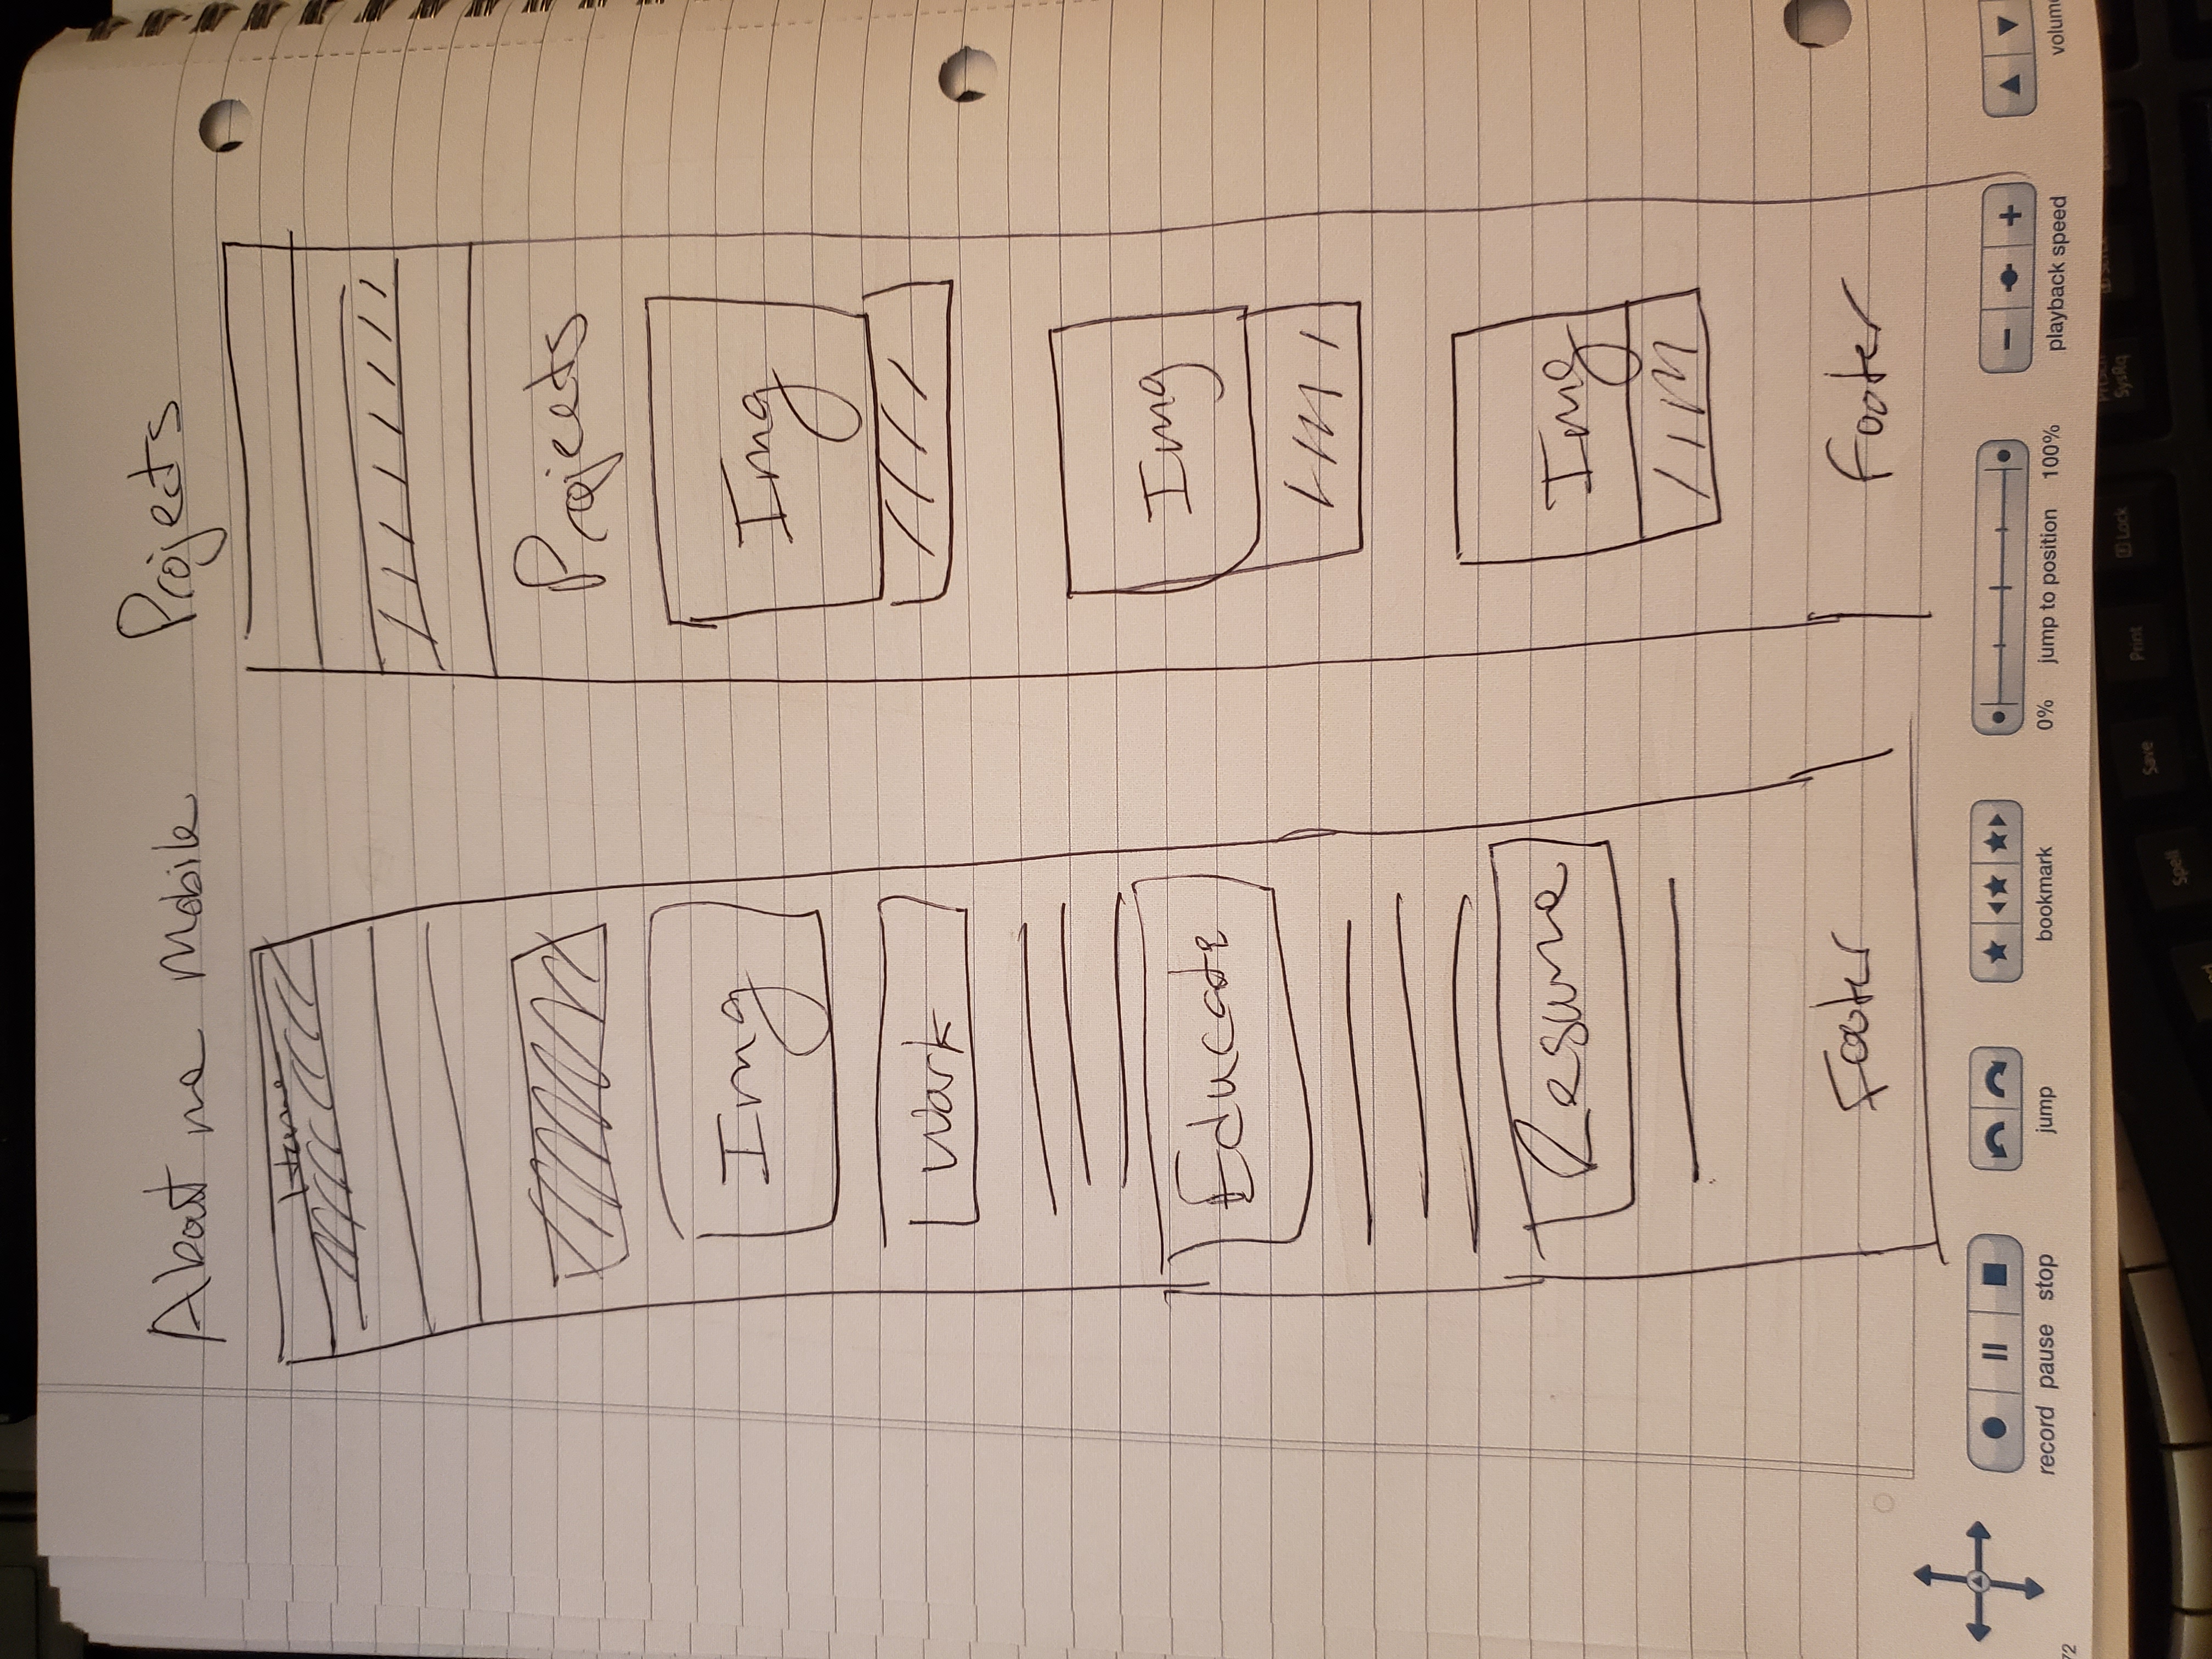 About me Mobile
Home
Img
Work
Educate
Resume
Footer
Projects
Projects
Img
Img
Img
Footer
record pause stop
jump
bookmark
0% jump to position 100%
playback speed
Lock
Print
SysRq
Save
Spell